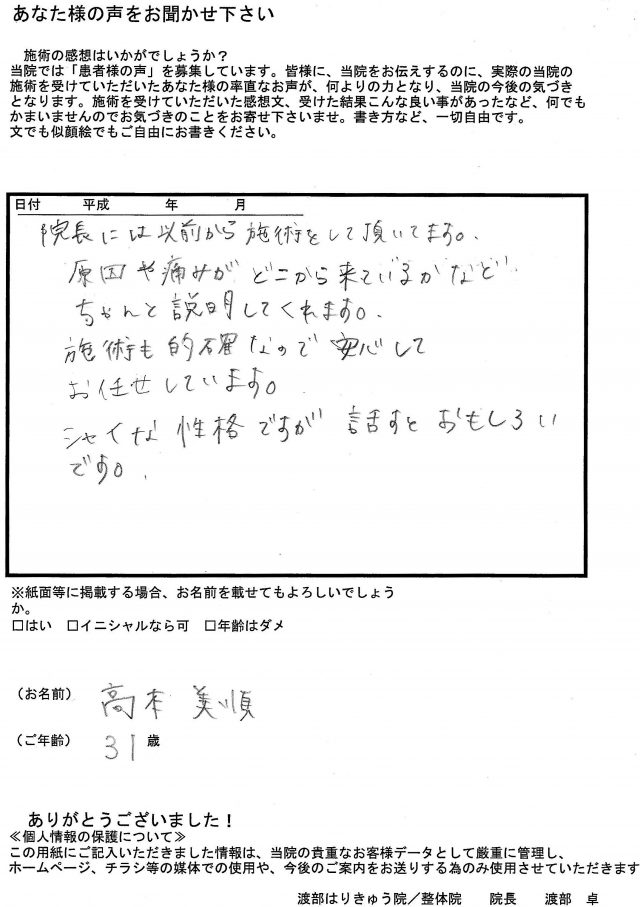 あなた様の声をお聞かせ下さい
施術の感想はいかがでしょうか？
当院では「患者様の声」を募集しています。皆様に、当院をお伝えするのに、実際の当院の
施術を受けていただいたあなた様の率直なお声が、何よりの力となり、当院の今後の気づき
となります。施術を受けていただいた感想文、受けた結果こんな良い事があったなど、何でも
かまいませんのでお気づきのことをお寄せ下さいませ。書き方など、一切自由です。
文でも似顔絵でもご自由にお書きください。
日付　平成　年　月
院長には以前から施術をして頂いてます。
原因や痛みが どこから来ているかなど
ちゃんと説明してくれます。
施術も的確なので安心して
お任せしています。
シャイな性格ですが 話すとおもしろい
です。
※紙面等に掲載する場合、お名前を載せてもよろしいでしょう
か。
□はい　□イニシャルなら可　□年齢はダメ
（お名前）　高本 美順
（ご年齢）　31歳
ありがとうございました！
≪個人情報の保護について≫
この用紙にご記入いただきました情報は、当院の貴重なお客様データとして厳重に管理し、
ホームページ、チラシ等の媒体での使用や、今後のご案内をお送りする為のみ使用させていただきます
渡部はりきゅう院／整体院　院長　渡部　卓